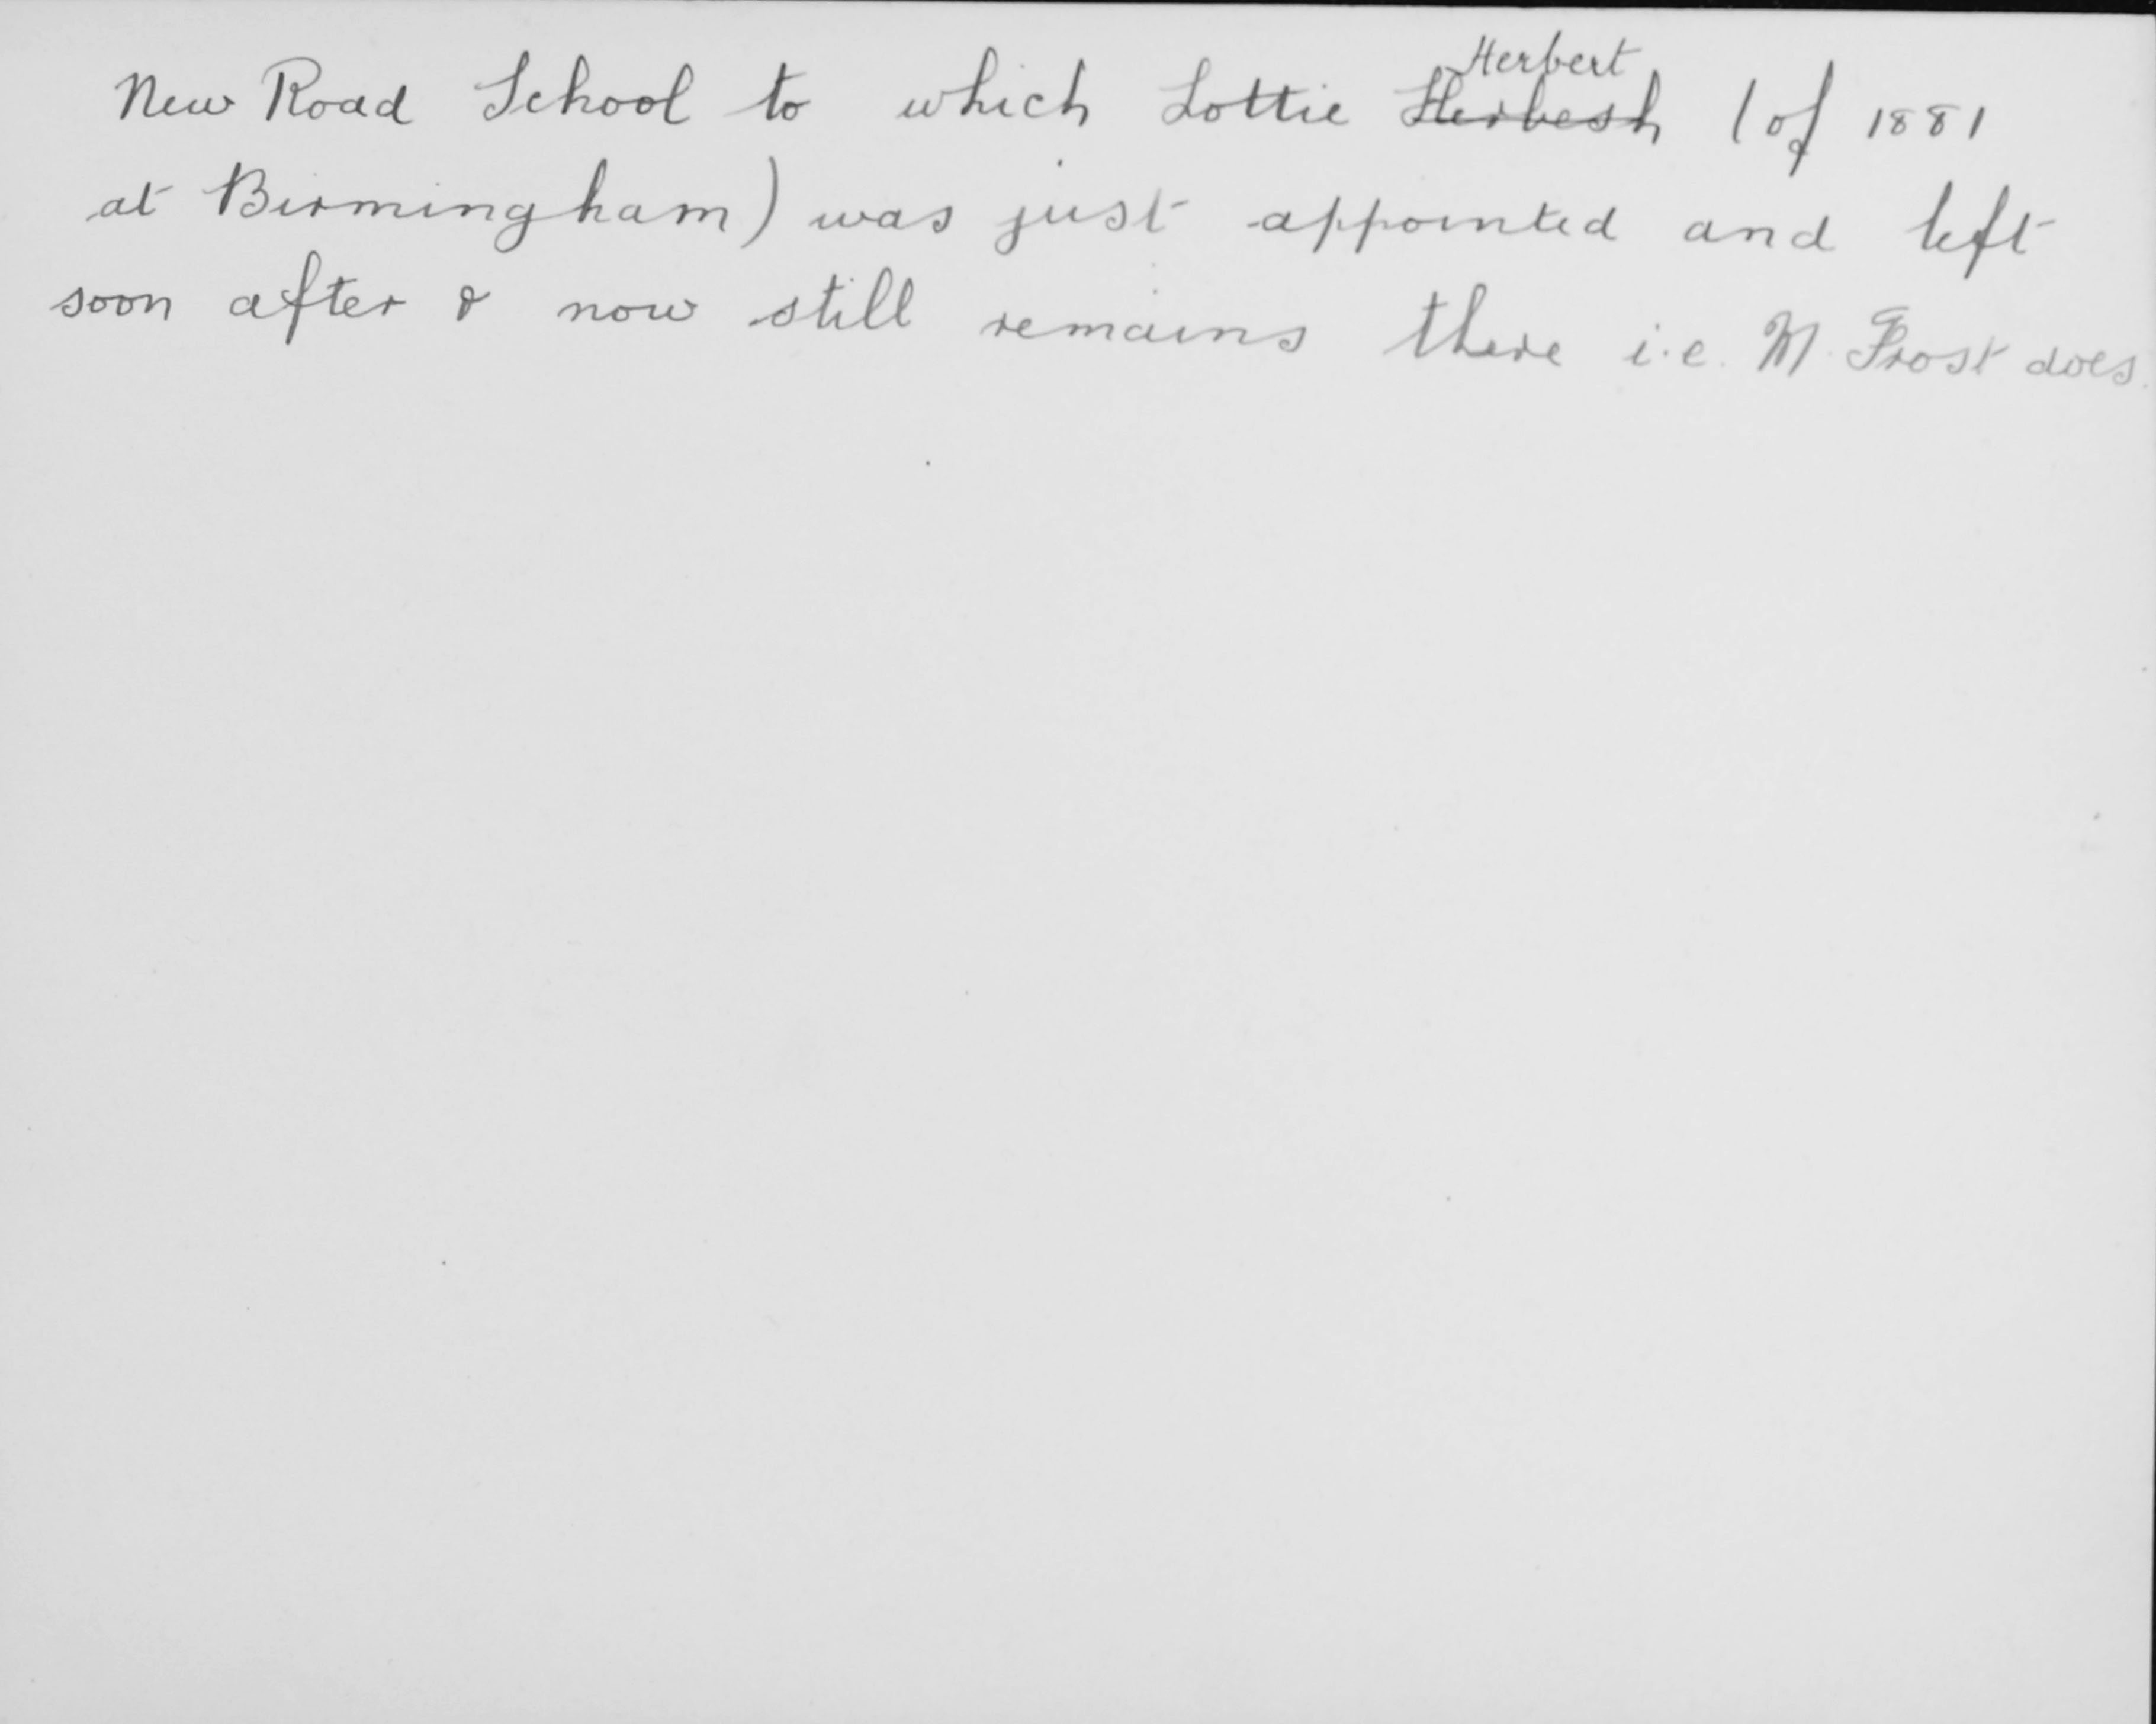 New Road School to which Lottie Herbesh Herbert (of 1881
at Birmingham) was just appointed and left
soon after & now still remains there i.e. M. Frost does.